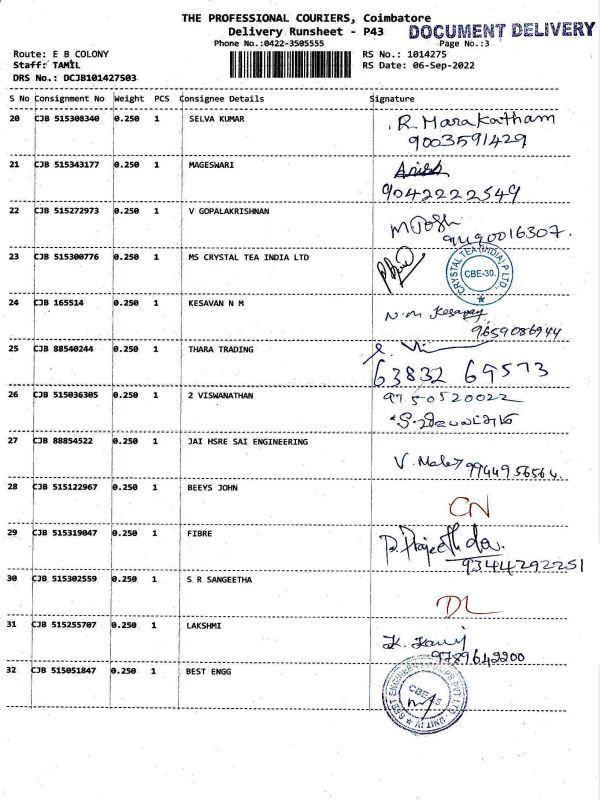 THE PROFESSIONAL COURIERS, Coimbatore
Delivery Runsheet - P43 DOCUMENT DELIVERY
Phone No.:0422-3505555 Page No.:3
Route: E B COLONY RS No.: 1014275
Staff: TAMIL RS Date: 06-Sep-2022
DRS No.: DCJB101427503
S No Consignment No Weight PCS Consignee Details Signature
20 CJB 515308340 0.250 1 SELVA KUMAR R. Marakatham
9003591429
21 CJB 515343177 0.250 1 MAGESWARI
9042222549
22 CJB 515272973 0.250 1 V GOPALAKRISHNAN
23 CJB 515300776 0.250 1 MS CRYSTAL TEA INDIA LTD CRYSTAL TEA (INDIA) P LTD. CBE-30.
24 CJB 165514 0.250 1 KESAVAN N M N.M Kesavan
9659086944
25 CJB 88540244 0.250 1 THARA TRADING
63832 69573
26 CJB 515036305 0.250 1 2 VISWANATHAN 9750520022
27 CJB 88854522 0.250 1 JAI HSRE SAI ENGINEERING
9944956564.
28 CJB 515122967 0.250 1 BEEYS JOHN
CN
29 CJB 515319047 0.250 1 FIBRE
9344292251
30 CJB 515302559 0.250 1 S R SANGEETHA
DL
31 CJB 515255707 0.250 1 LAKSHMI
9789642200
32 CJB 515051847 0.250 1 BEST ENGG